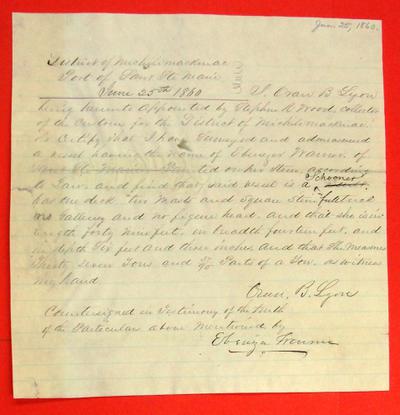 June 25, 1860.
District of Michilimackinac
Port of Saut Ste Marie
June 25th 1860 I Oran B Lyon
being hereunto appointed by Stephen R Wood collector
of the Customs for the District of Michilimackinac
Do Certify that I have Surveyed and admeasured
a vessel having the name of Ebenezer of
Saut Ste Marie on his Stern according
Schooner
to Law. and find that said vessel is a
has one deck Two Masts and square Stern
no Gallery and no figure head. and that she is in
length forty nine feet. in breadth fourteen feet. and
in depth Six feet and three inches and that She Measures
Thirty seven Tons and Parts of a Ton. as witness
my hand.
Oran. B. Lyon
Countersigned in Testimony of the truth
of the Particulars above Mentioned by